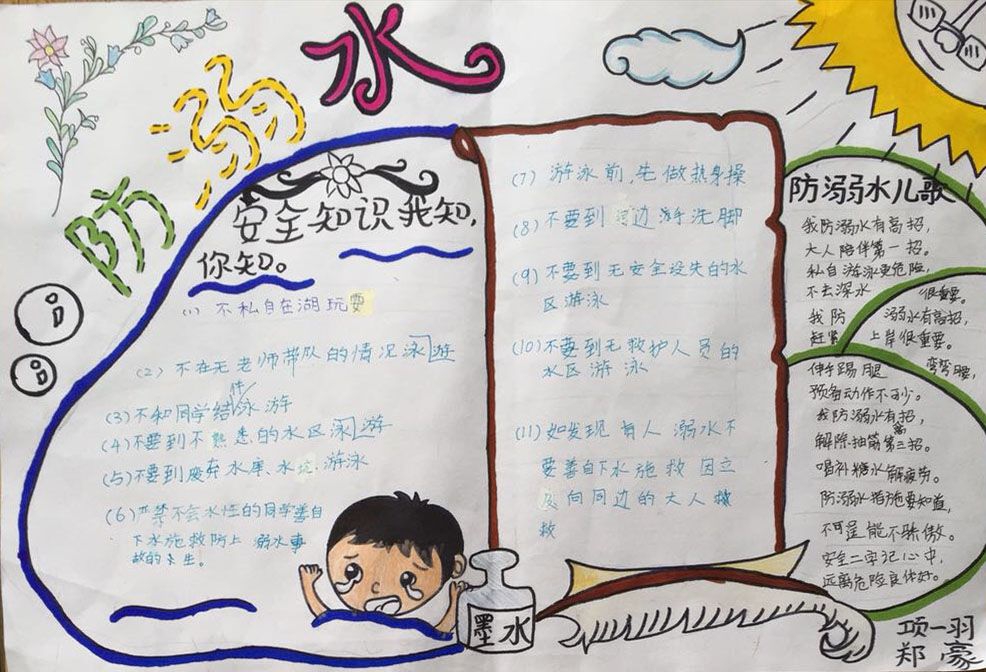 防溺水
安全知识我知,
你知。
(1) 不私自在湖玩耍
(2) 不在无老师带队的情况泳游
(3)不和同学结伴泳游
(4)不要到不熟悉的水区泳游
(5)不要到废弃水库、水坑游泳
(6)严禁不会水性的同学善自
下水施救防上 溺水事
故的发生。
(7) 游泳前,先做热身操
(8) 不要到河边洗手洗脚
(9) 不要到无安全设失的水
区游泳
(10)不要到无救护人员的
水区游泳
(11) 如发现有人溺水不
要善自下水施救 因立
向同边的大人
救
墨水
防溺水儿歌
我防溺水有高招,
大人陪伴第一招。
私自游泳更危险,
不去深水
很重要。
我防溺水有高招,
赶紧上岸很重要。
伸手踢腿弯弯腰,
预备动作不可少。
我防溺水有高招,
解除抽筋第三招。
唱补糖水解疲劳。
防溺水措施要知道,
不可逞能不骄傲。
安全二字记心中,
远离危险良体好。
项一羽
郑豪